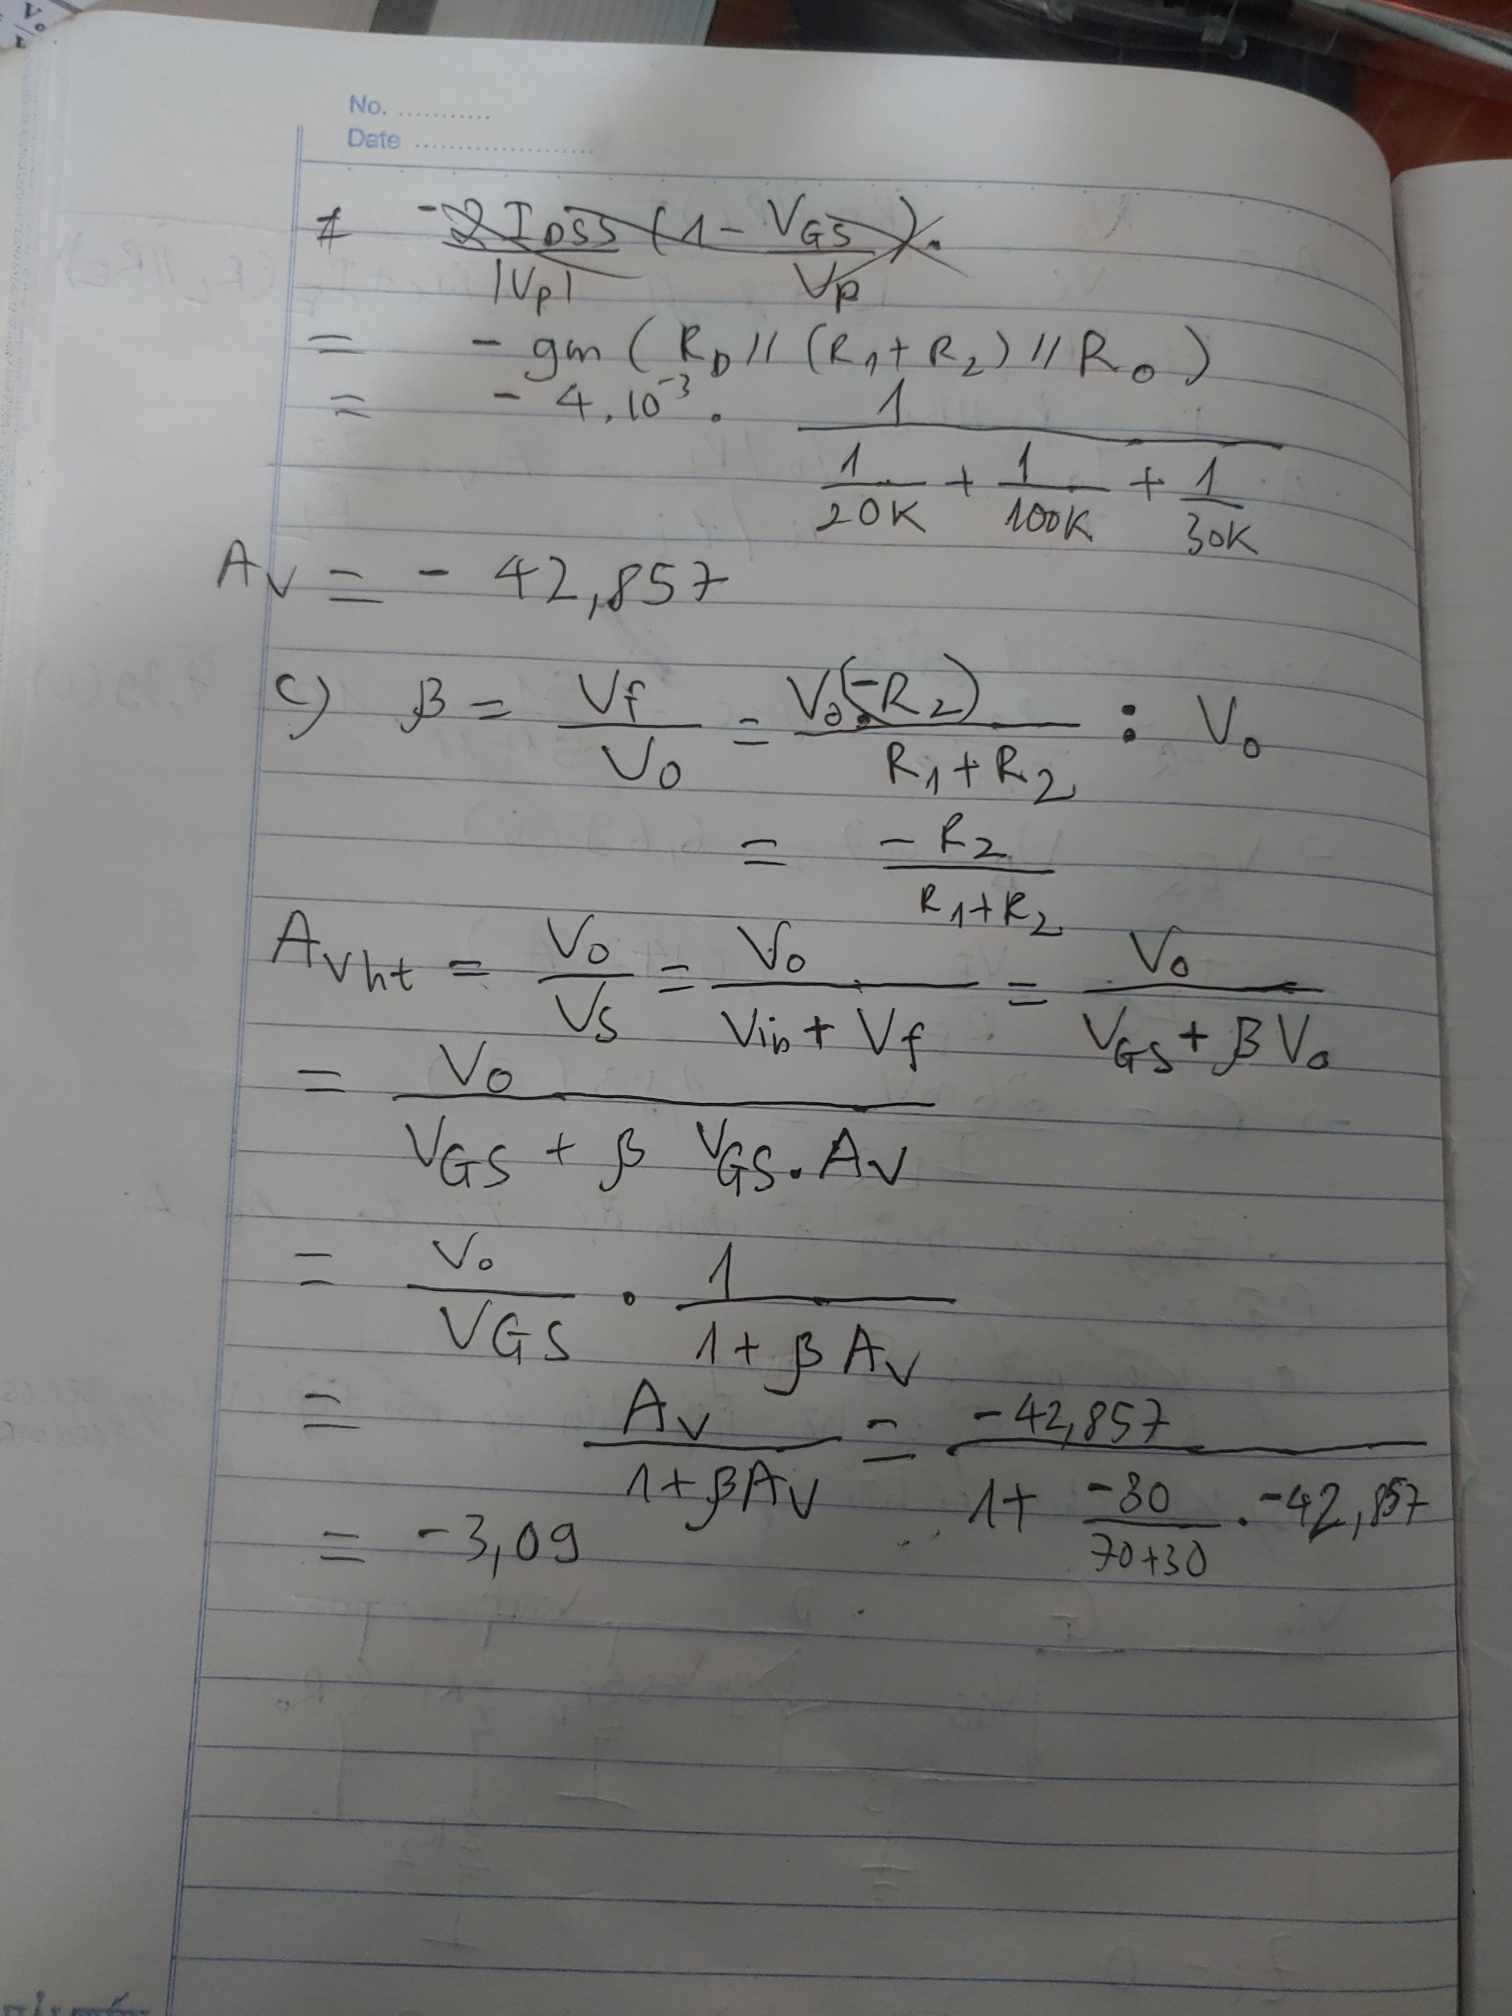 No. ...........
Date .....................
≠ -2 IDSS / |Vp| (1 - VGS / Vp).
= - gm (RD // (R1 + R2) // Ro)
= - 4.10^-3 . 1 / (1/20K + 1/100K + 1/30K)
Av = - 42,857
c) β = Vf / Vo = Vo.(-R2) / (R1 + R2) : Vo
= -R2 / (R1 + R2)
Avht = Vo / Vs = Vo / (Vin + Vf) = Vo / (VGS + βVo)
= Vo / (VGS + β VGS . Av)
= Vo / VGS . 1 / (1 + βAv)
= Av / (1 + βAv) = -42,857 / (1 + -30 / (70+30) . -42,857)
= -3,09